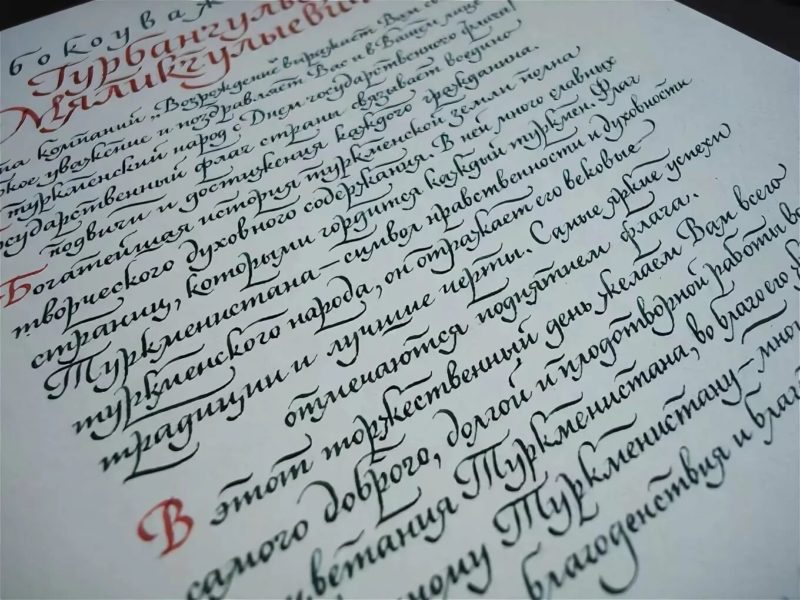 бокоуваж
Гурбангулы
Мяликгулыевич
та компаний „Возрождение" выражает Вам св
окое уважение и поздравляет Вас и в Вашем лице
туркменский народ с Днем государственного флага!
осударственный флаг страны связывает воедино
подвиги и достижения каждого гражданина.
Богатейшая история туркменской земли полна
творческого духовного содержания. В ней много славных
страниц, которыми гордится каждый туркмен. Флаг
Туркменистана – символ нравственности и духовности
туркменского народа, он отражает его вековые
традиции и лучшие черты. Самые яркие успехи
отмечаются поднятием флага.
В этот торжественный день желаем Вам всего
самого доброго, долгой и плодотворной работы во
цветания Туркменистана, во благо его
ному Туркменистану – мно
благоденствия и благ